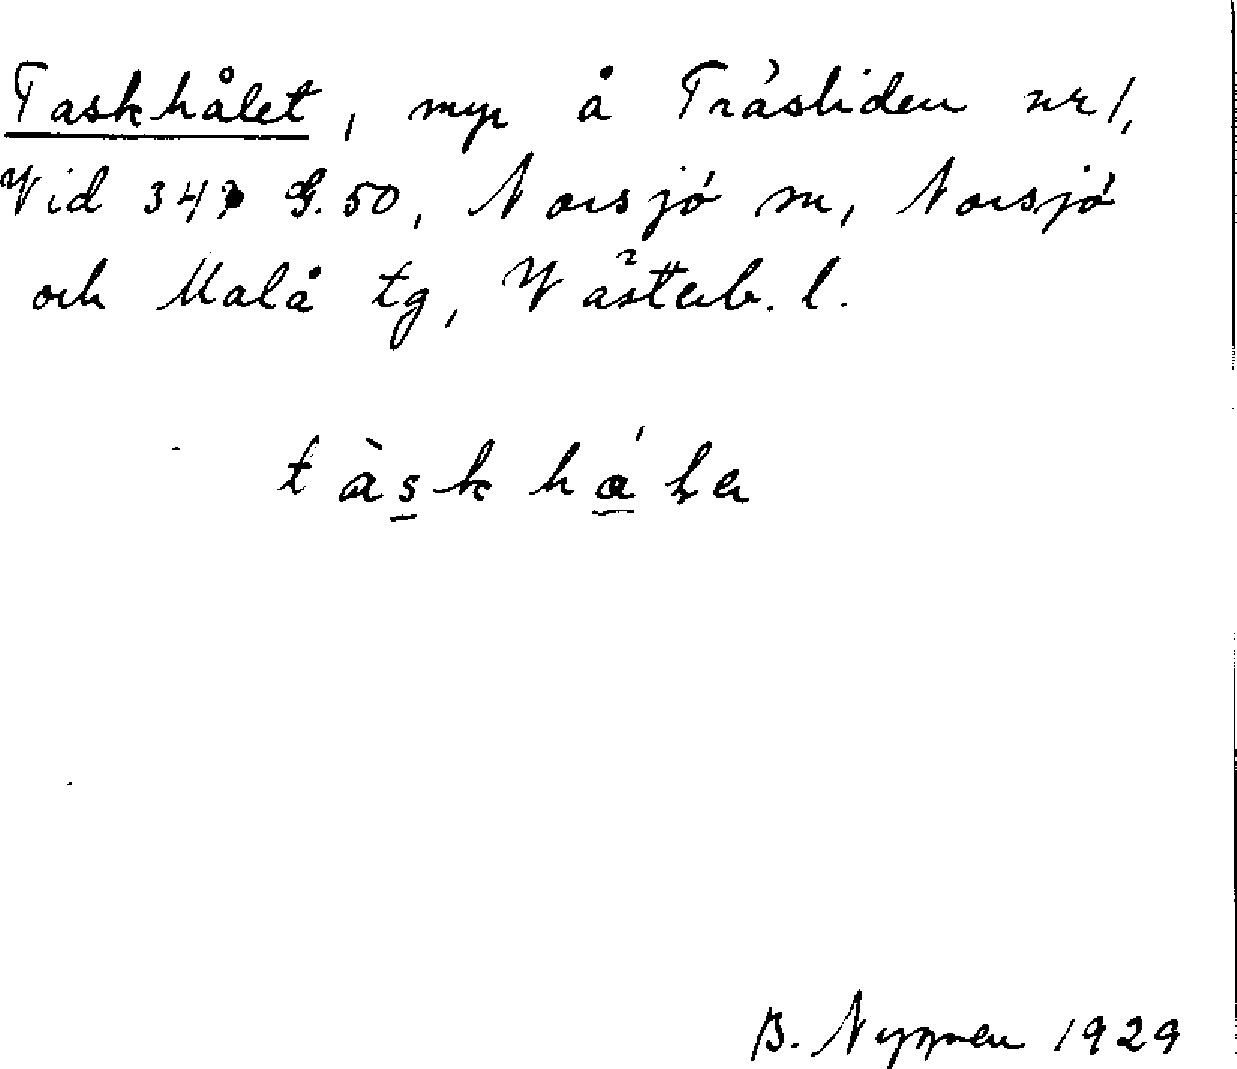 Taskhålet, myr å Träsliden nr 1,
Vid 347 G.50, Norsjö sn, Norsjö
och Malå tg, Västerb. l.
tàskhá
B. Nygren 1929